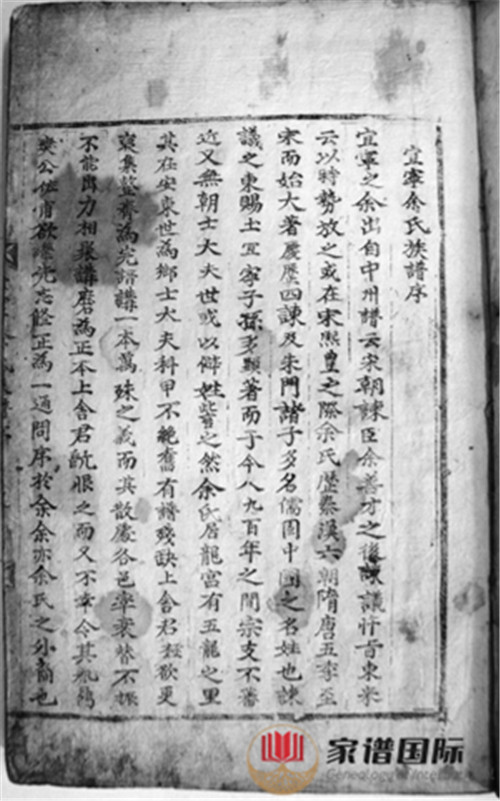 宜寧余氏族譜序
宜寧之余出自中州譜云宋朝諫臣余善才之後諫議忤旨東來
云以時勢放之或在宋熙豊之際余氏歷秦漢六朝隋唐五季至
宋而始大著慶歷四諫及朱門諸子多名儒固中國之名姓也諫
議之東賜土宜寧子孫多顯著而于今八九百年之間宗支不蕃
近又無朝士大夫世或以僻姓訾之然余氏居龍宮有五龍之里
其在安東世為鄉士大夫科甲不絶舊有譜殘缺上舍君欲更
裒集整齊為完譜講一本萬殊之義而其散處各邑率衰替不
不能用力相與講磨為正本上舍君恨之而又不幸今其
奭公佐甫欲先志正為一通問序於余余亦余氏之外裔也
家谱国际
Genealogy